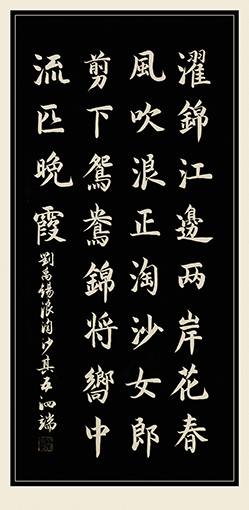 濯錦江邊两岸花春
風吹浪正淘沙女郎
剪下鴛鴦錦将嚮中
流匹晚霞
劉禹锡浪淘沙其五泗端